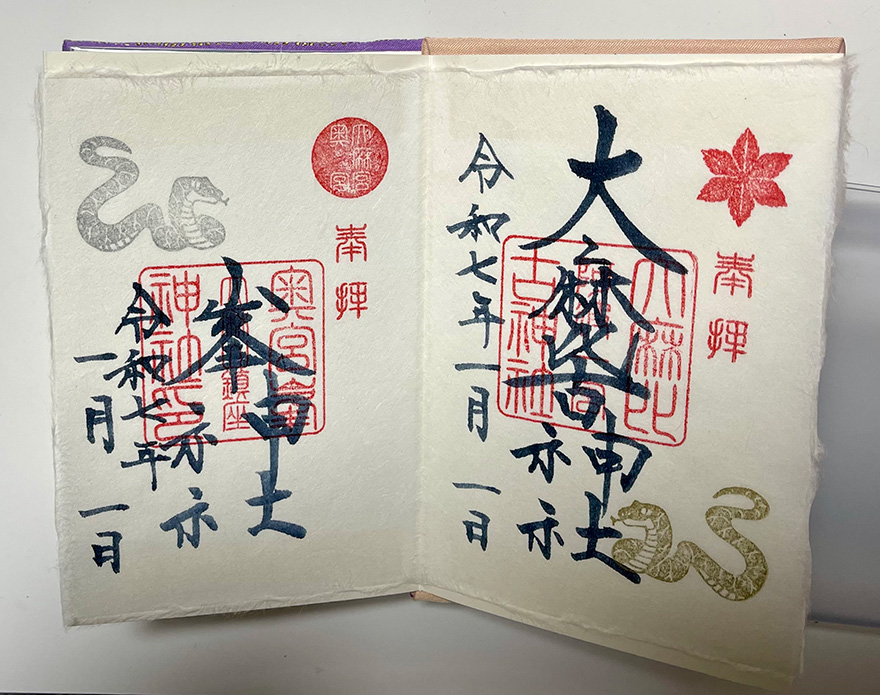 奉拝
大麻比古神社
大麻比
古神社
令和七年一月一日
奉拝
峯神社
奥宮峯
鎮座
神社印
令和七年
一月一日